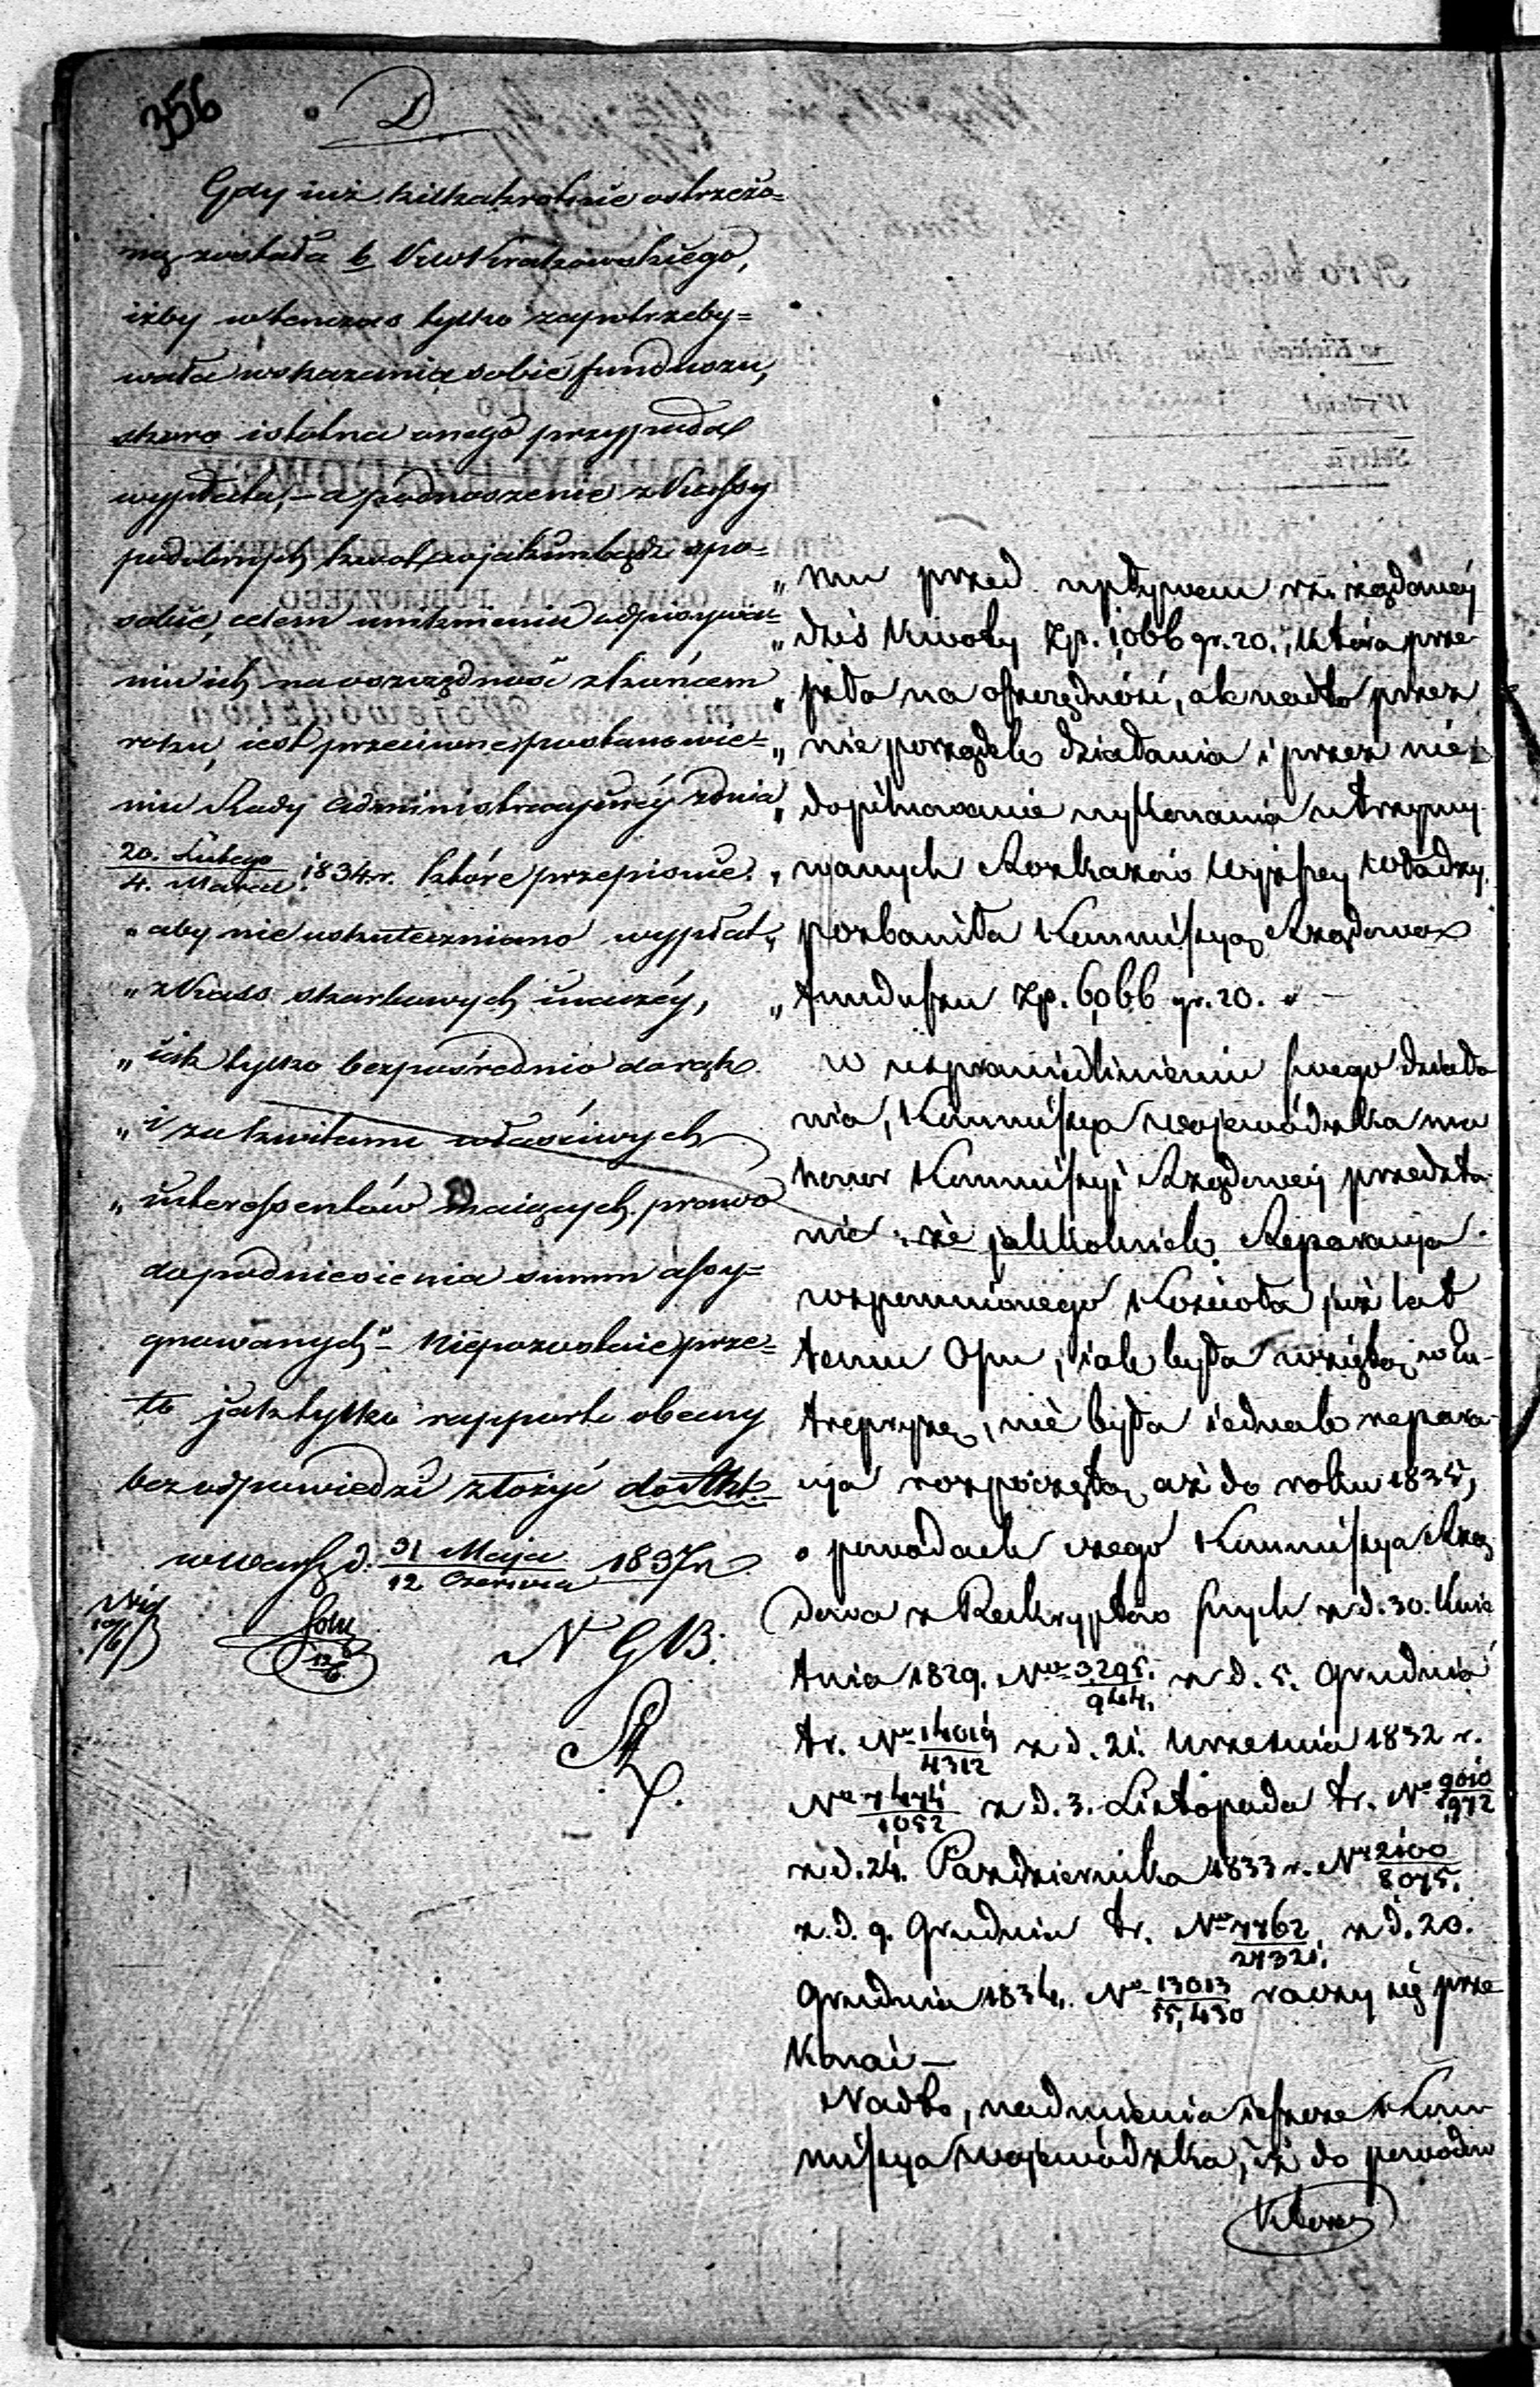 356
D
Gdy iuż kilkakrotnie ostrzeżo=
ną została b. KW Krakowskiego,
iżby wtenczas tylko zapotrzeby=
wała wskazania sobie funduszu,
skoro istotna onego przypada
wypłata, – a podnoszenie z Kassy
podobnych kwot w jakimbądź spo=
sobie, celem uniknienia odpisywa=
nia ich na oszczędność z końcem
roku, iest przeciwne postanowie=
niu Rady Administracyjnéy z dnia
20. Lutego / 4. Marca 1834. r. które przepisuie:
„aby nie uskuteczniano wypłat,
„z Kass skarbowych inaczéy,
„iak tylko bezpośrednio do rąk
„i za kwitami właściwych
„interessentów maiących prawo
do podniesienia summ assy=
gnowanych“ – Niepozostaie prze=
to jak tylko rapport obecny
bez odpowiedzi złożyć do Akt.
w Warsz. d. 31 Maja / 12 Czerwca 1837 r.
N G B:
„mu przed upływem rz. rządowéy
„dziś Kwoty Zp. 1,066 gr. 20., która prze
„szła na oszczędność, ale nadto przez
„nie porządek działania i przez nie
„dopilnowanie wykonania utrzymy-
„wanych Rozkazów Wyższey Władzy,
„pozbawiła Kommissyą Rządową
„funduszu Zp. 6,066 gr. 20. “ –
w usprawiedliwieniu swego działa
nia, Kommissya Wojewódzka ma
honor Kommissyi Rządowéy przedsta
wić, że jakkolwiek Reparacya
wspomnionego Kościoła już lat
temu Ośm, iak była wzięta w En-
trepryzę, nie była iednak repara-
cya rozpoczętą aż do roku 1835,
o powodach czego Kommissya Rzą
dowa z Reskryptów swych z d. 30. Kwie
tnia 1829. No 3295. / 944. z d. 5. Grudnia
t.r. No 14019 / 4312 z d. 21. Września 1832 r.
No 7474 / 1052 z d. 3. Listopada t.r. No 9010 / 1972
z d. 24. Pazdziernika 1833 r. No 2100 / 8075.
z d. 9. Grudnia t.r. No 7762 / 27321. z d. 20.
Grudnia 1834. No 13013 / 55,430 raczy się prze
konać –
Nadto, nadmienia ieszcze Kom
missya Wojewódzka, iż do powodów
które